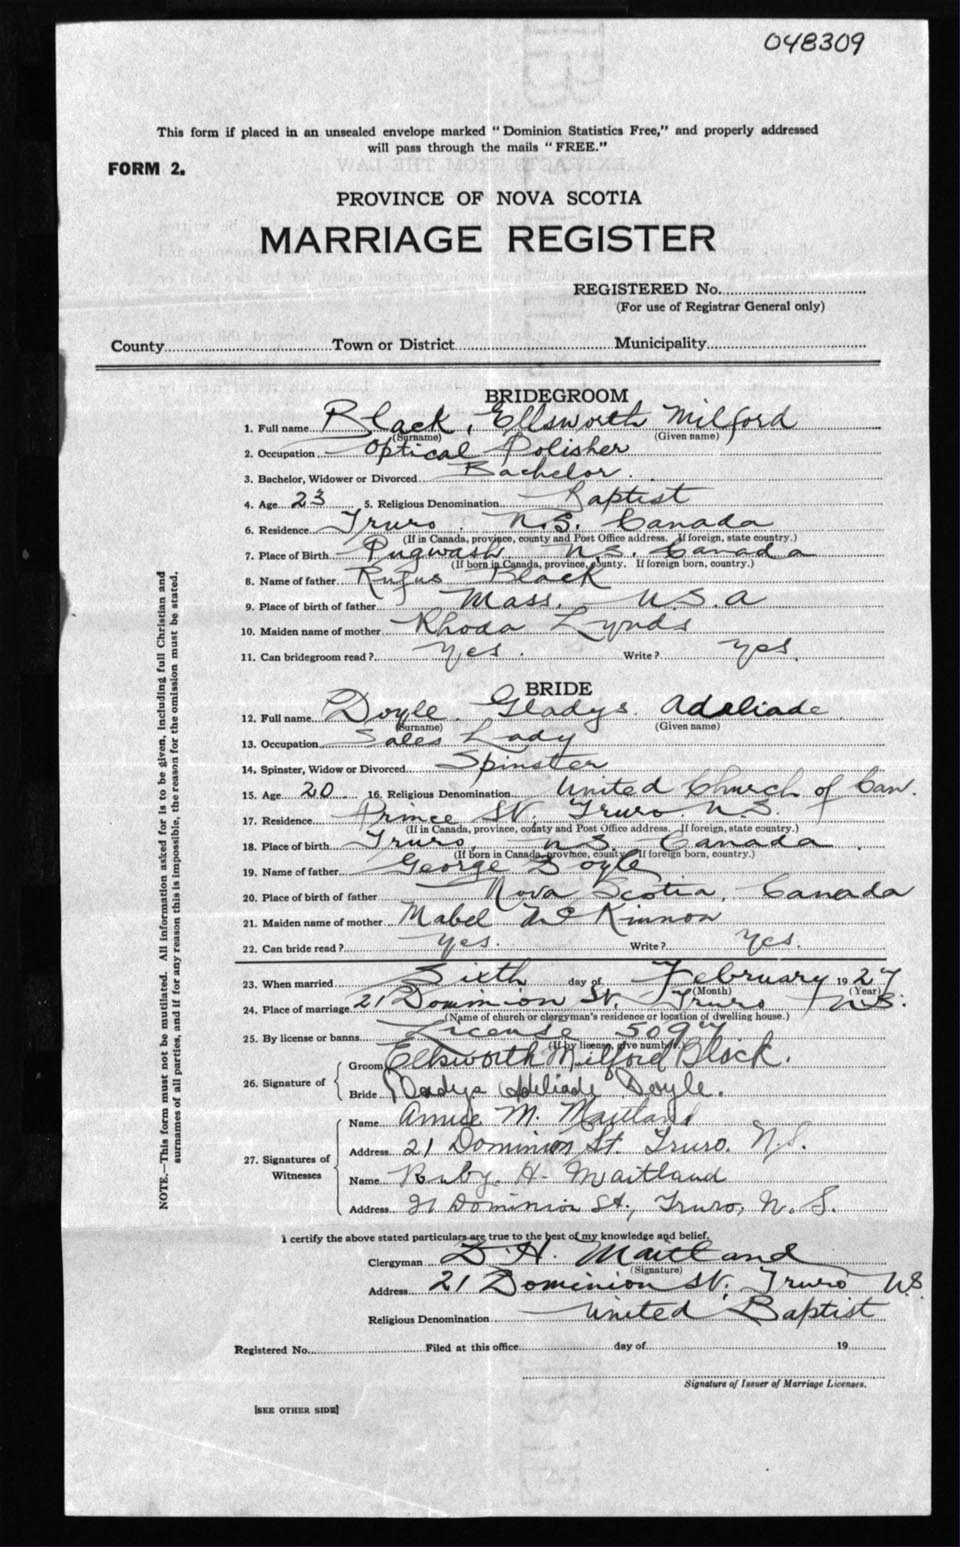 048309
This form if placed in an unsealed envelope marked "Dominion Statistics Free," and properly addressed
will pass through the mails "FREE."
FORM 2.
PROVINCE OF NOVA SCOTIA
MARRIAGE REGISTER
REGISTERED No.
(For use of Registrar General only)
County Town or District Municipality
BRIDEGROOM
1. Full name Black, Ellsworth Milford
(Surname) (Given name)
2. Occupation Optical Polisher
3. Bachelor, Widower or Divorced Bachelor.
4. Age 23 5. Religious Denomination Baptist
6. Residence Truro. N.S. Canada
(If in Canada, province, county and Post Office address. If foreign, state country.)
7. Place of Birth Pugwash N.S. Canada
(If born in Canada, province, county. If foreign born, country.)
8. Name of father Rufus Black
9. Place of birth of father Mass. U.S.A
10. Maiden name of mother Rhoda Lynds
11. Can bridegroom read? Yes. Write? Yes.
BRIDE
12. Full name Doyle. Gladys. Adeliade.
(Surname) (Given name)
13. Occupation Sales Lady
14. Spinster, Widow or Divorced Spinster
15. Age 20 16. Religious Denomination United Church of Can.
17. Residence Prince St. Truro. N.S.
(If in Canada, province, county and Post Office address. If foreign, state country.)
18. Place of birth Truro, N.S. Canada.
(If born in Canada, province, county. If foreign born, country.)
19. Name of father George Doyle
20. Place of birth of father Nova Scotia, Canada
21. Maiden name of mother Mabel McKinnon
22. Can bride read? Yes. Write? Yes.
23. When married Sixth day of February 1927
(Month) (Year)
24. Place of marriage 21 Dominion St. Truro N.S.
(Name of church or clergyman's residence or location of dwelling house.)
25. By license or banns. License
(If by license, give number.)
26. Signature of
Groom Ellsworth Milford Black.
Bride Gladys Adeliade Doyle.
27. Signatures of Witnesses
Name M. Maitland
Address 21 Dominion St. Truro. N.S.
Name Ruby. H. Maitland
Address 21 Dominion St., Truro, N.S.
I certify the above stated particulars are true to the best of my knowledge and belief.
Clergyman D. H. Maitland
(Signature)
Address 21 Dominion St. Truro N.S.
Religious Denomination United Baptist
Registered No. Filed at this office day of 19
Signature of Issuer of Marriage Licenses.
[SEE OTHER SIDE]
NOTE.—This form must not be mutilated. All information asked for is to be given, including full Christian and
surnames of all parties, and if for any reason this is impossible, the reason for the omission must be stated.